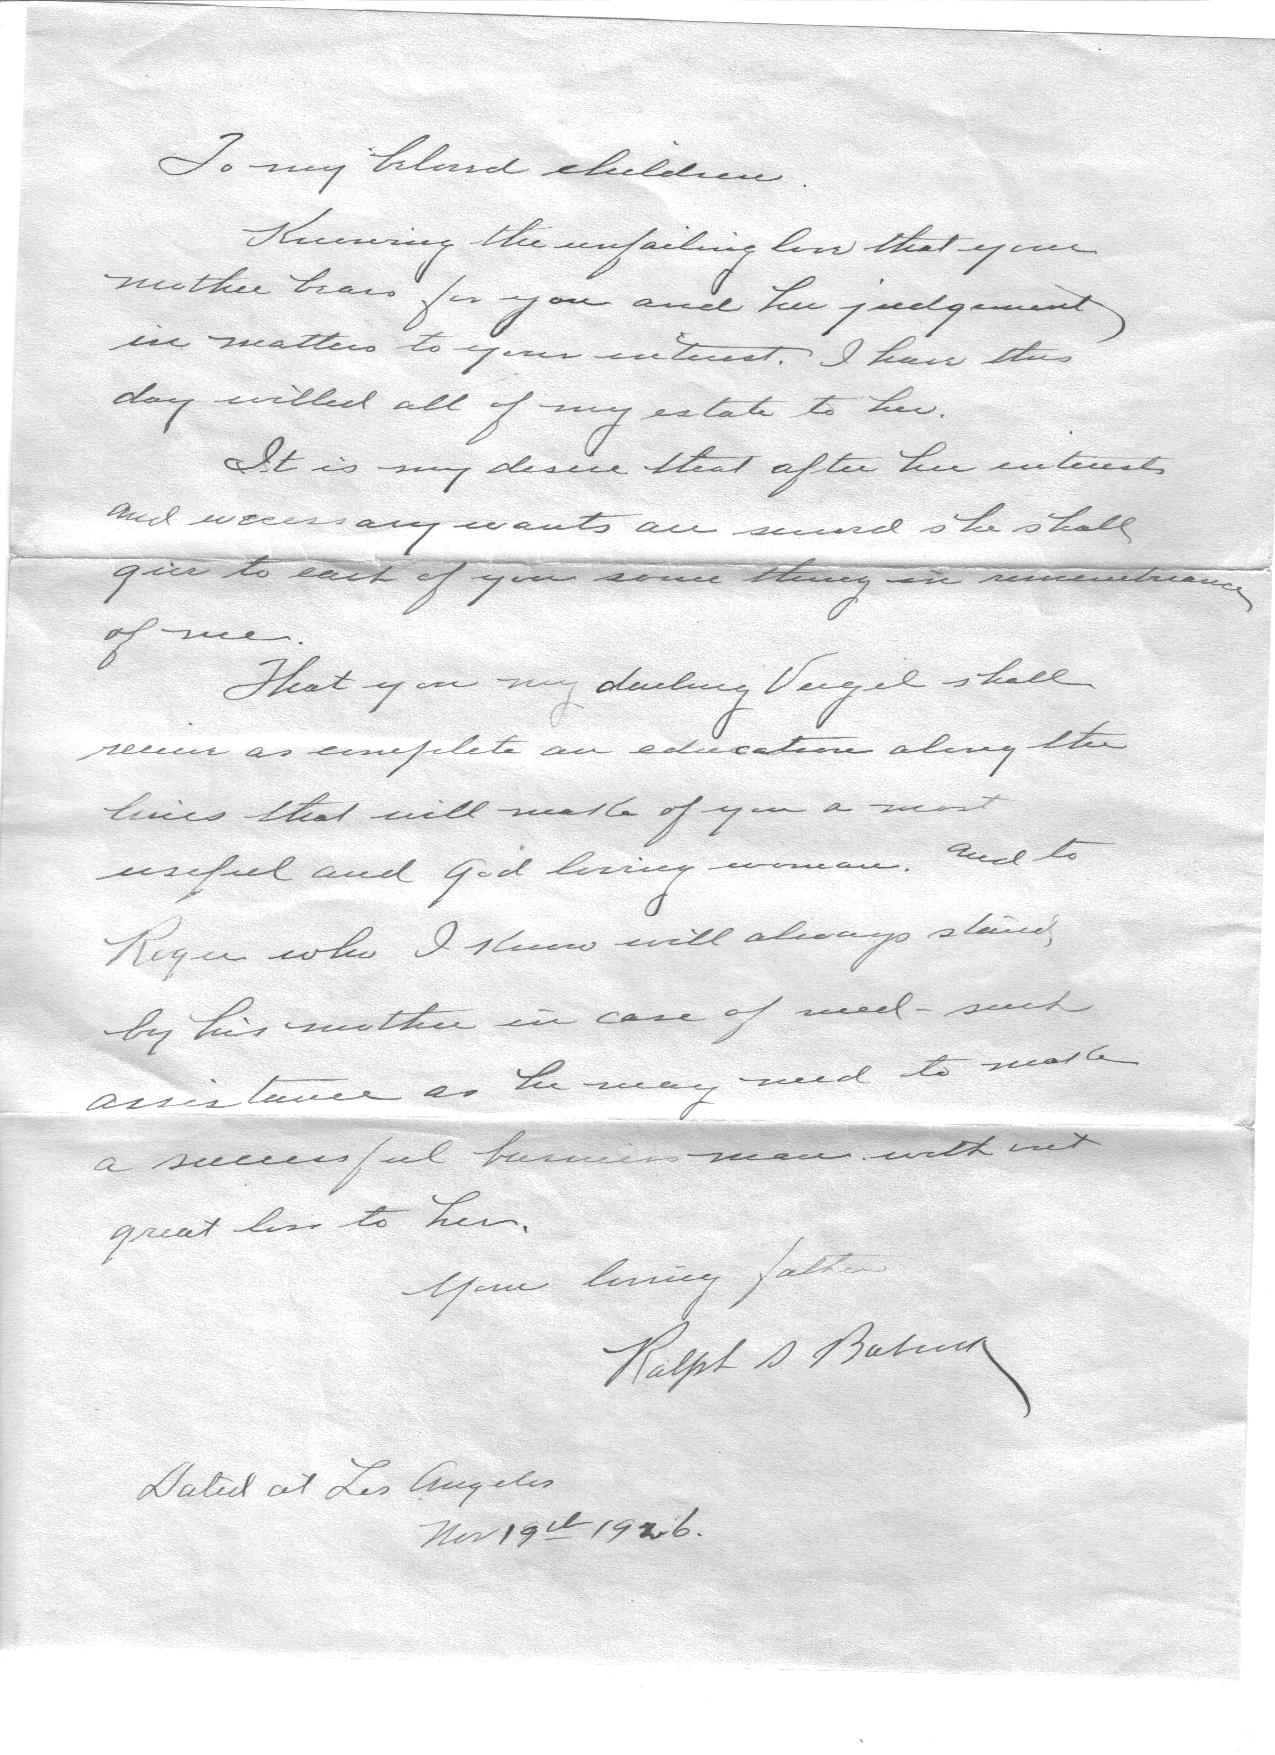 To my beloved children.
Knowing the unfailing love that your
mother bears for you and her judgement
in matters to your interest. I have this
day willed all of my estate to her.
It is my desire that after her interests
and necessary wants are secured she shall
give to each of you some thing in remembrance
of me.
That you my darling Vergil shall
receive as complete an education along the
lines that will make of you a most
useful and God loving woman. And to
Roger who I know will always stand
by his mother in case of need - such
assistance as he may need to make
a successful business man without
great loss to her.
Your loving father
Ralph S Babcock
Dated at Los Angeles
Nov 19th 1926.